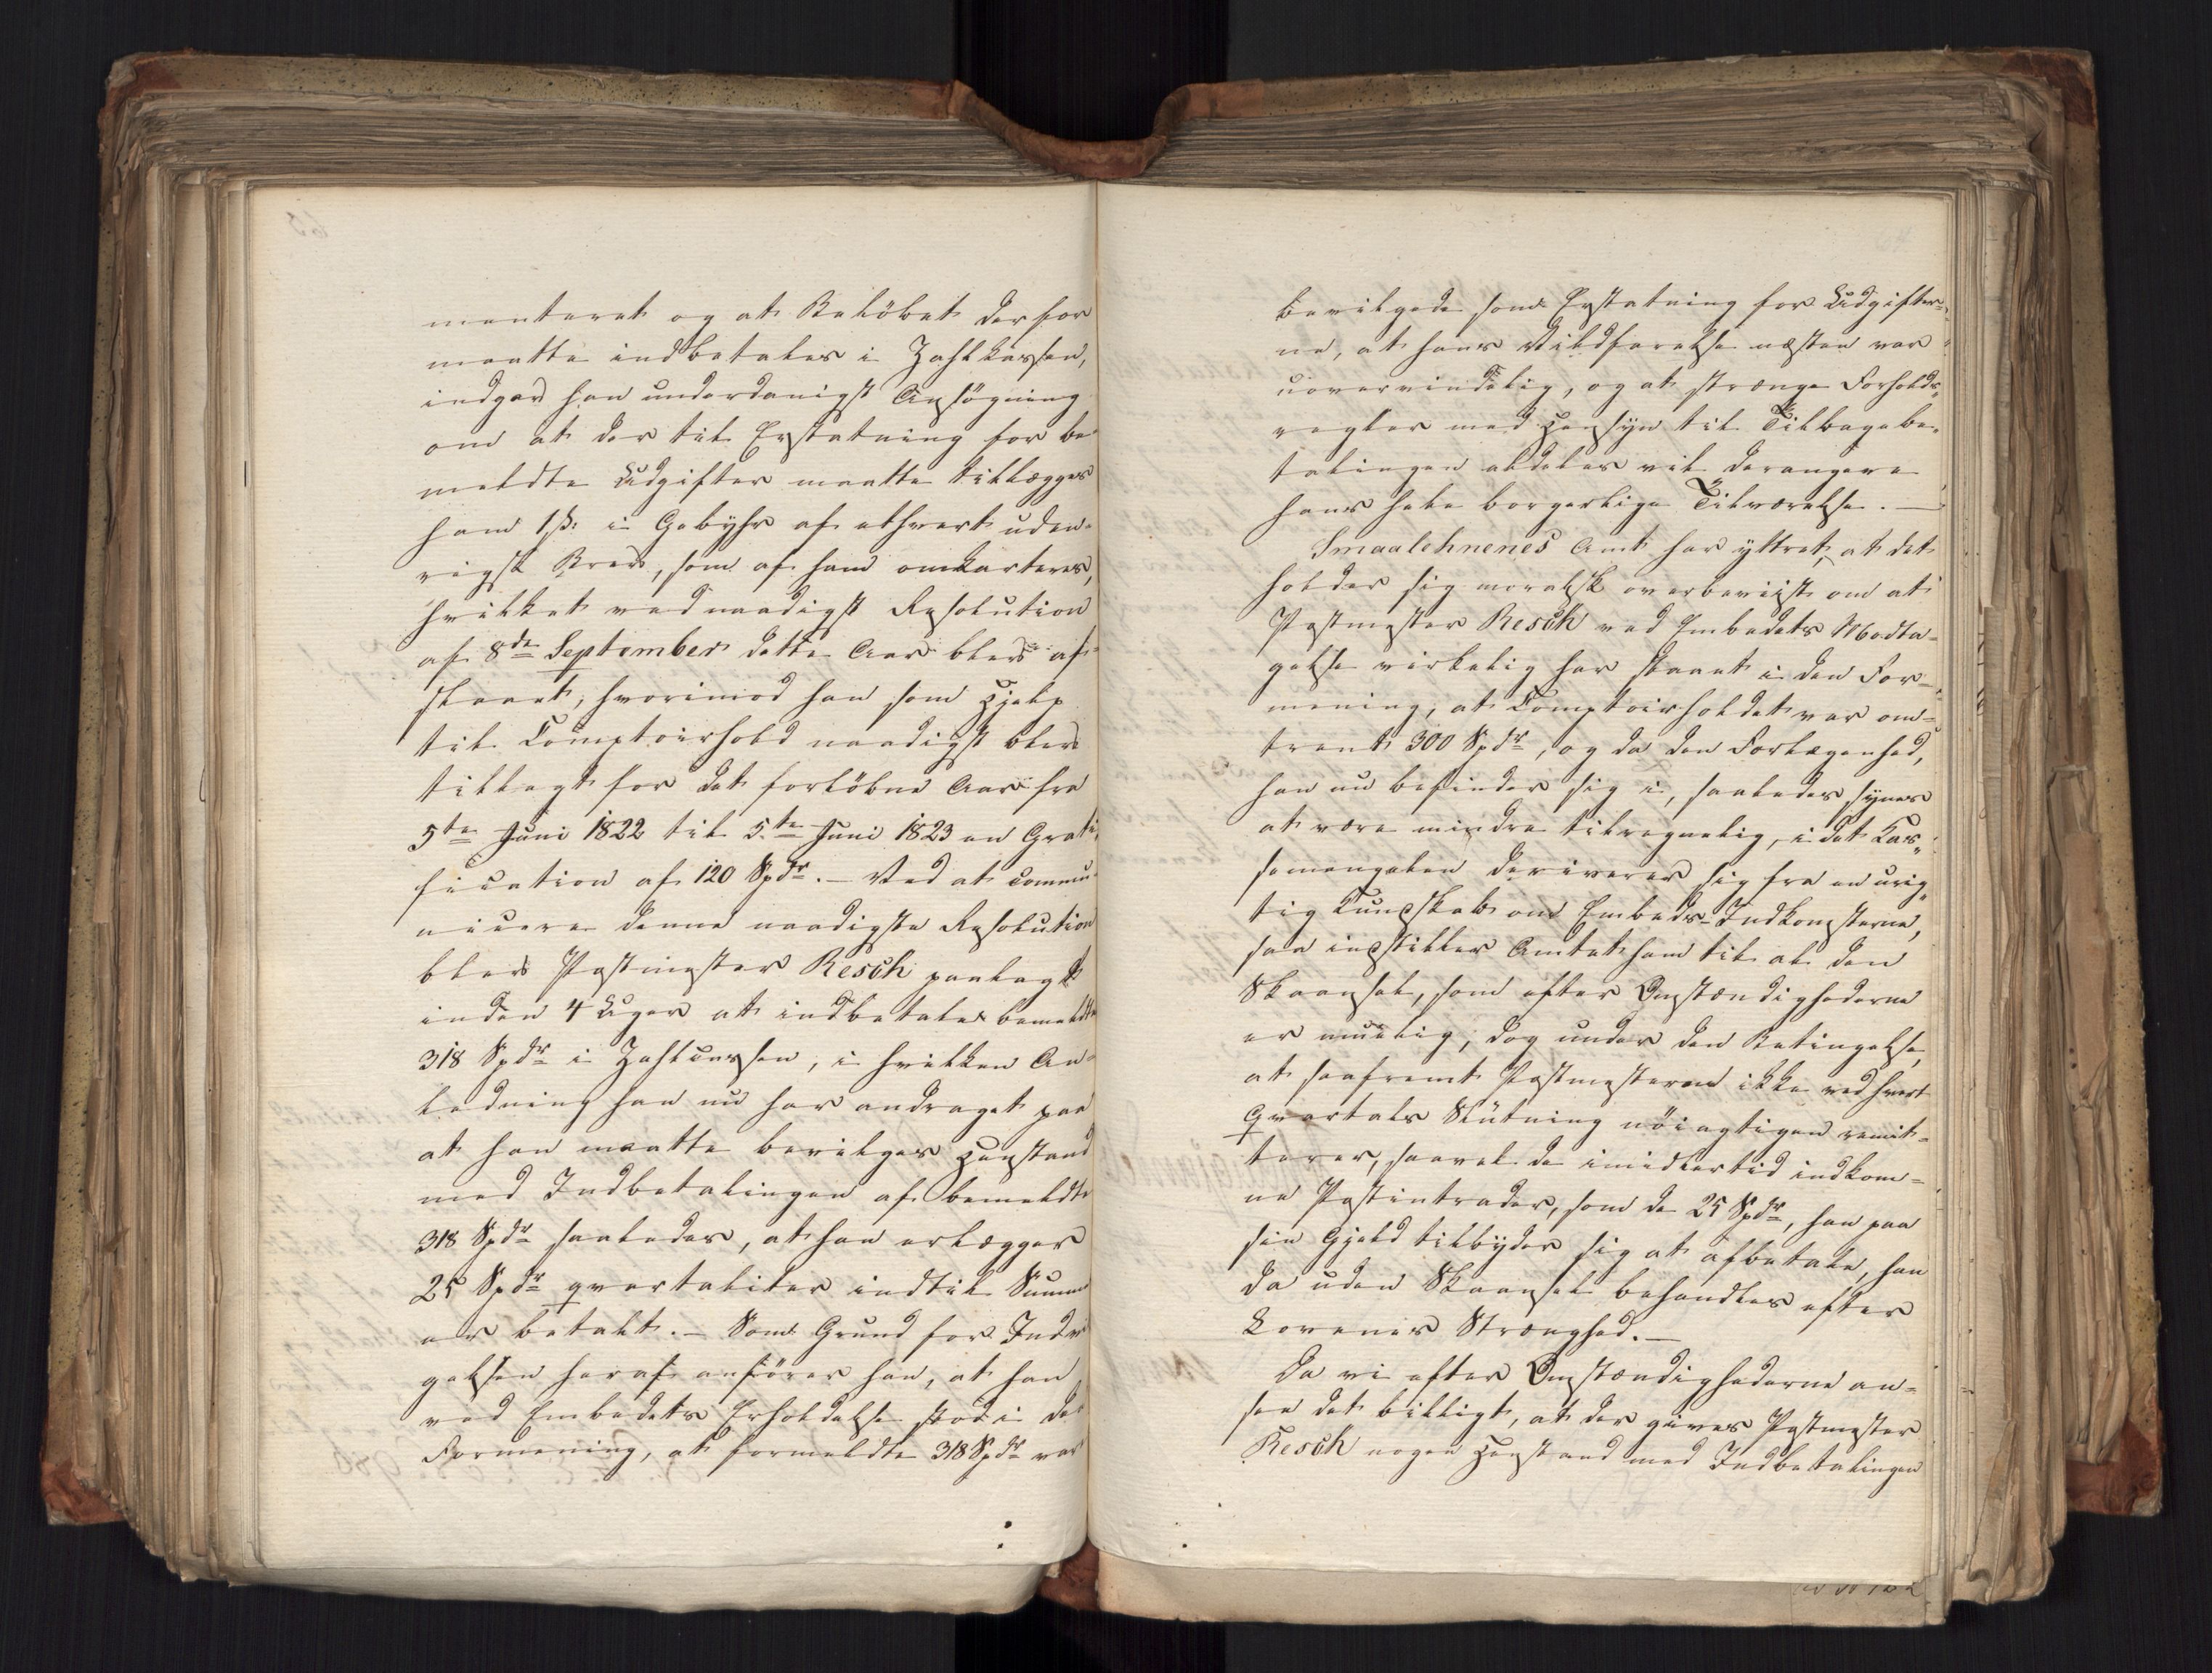 menteret og at Beløbet derfor
maatte indbetales i Zahlkassen,
indgav han underdanigst Ansøgning
om at der til Erstatning for be-
meldte Udgifter maatte tillægges
ham 1 ß: i Gebyhr af ethvert uden-
rigsk Brev, som af ham omkarteres,
hvilket ved naadigst Resolution
af 8de September dette Aar blev af-
slaaet, hvorimod han som Hjelp
til Comptoirhold naadigst blev
tillagt for det forløbne Aar fra
5te Juni 1822 til 5te Juni 1823 en Grati-
fication af 120 Spdr. – Ved at commu-
nicere denne naadigste Resolution
blev Postmester Resch paalagt
inden 4 Uger at indbetale bemeldte
318 Spdr i Zahlcassen, i hvilken An-
ledning han nu har andraget paa
at han maatte bevilges Henstand
med Indbetalingen af bemeldte
318 Spdr saaledes, at han erlægger
25 Spdr qvartaliter indtil Summen
er betalt. – Som Grund for Indvil-
gelsen heraf anfører han, at han
ved Embedets Erholdelse stod i den
Formening, at formeldte 318 Spdr var
bevilgede som Erstatning for Udgifter-
ne, at hans Vildfarelse næsten var
uovervindelig, og at strænge Forholds-
regler med Hensyn til Tilbagebe-
talingen aldeles vil derangere
hans hele borgerlige Tilværelse. –
Smaalehnenes Amt har yttret, at det
holder sig moralsk overbeviist om at
Postmester Resch ved Embedets Modta-
gelse virkelig har staaet i den For-
mening, at Comptoirholdet var om-
trent 300 Spdr, og da den Forlegenhed,
han nu befinder sig i, saaledes synes
at være mindre tilregnelig, i det Kas-
semangelen deriverer sig fra en urig-
tig Kundskab om Embeds-Indkomsterne,
saa indstiller Amtet ham til al den
Skaansel, som efter Omstændighederne
er muelig; dog under den Betingelse,
at saafremt Postmesteren ikke ved hvert
Qvartals Slutning nøiagtigen remit-
terer, saavel de imidlertid indkom-
ne Postintrader, som de 25 Spdr, han paa
sin Gjeld tilbyder sig at afbetale, han
da uden Skaansel behandles efter
Lovenes Strænghed. –
Da vi efter Omstændighederne an-
see det billigt, at der gives Postmester
Resch nogen Henstand med Indbetalingen